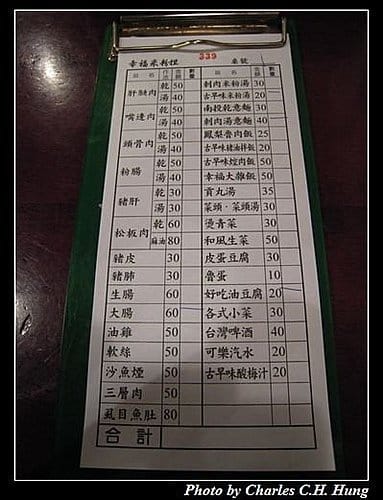 339
幸福米料理 桌號
品名 作法 金額 數量 品名 金額 數量
肝腱肉 乾 50 刺肉米粉湯 30
湯 40 古早味米粉湯 20
嘴邊肉 乾 50 南投乾意麵 30
湯 40 刺肉湯意麵 40
頭骨肉 乾 50 鳳梨魯肉飯 25
湯 40 古早味豬油拌飯 20
粉腸 乾 50 古早味焢肉飯 50
湯 40 幸福大雜飯 50
豬肝 乾 30 貢丸湯 35
湯 30 菜頭、菜頭湯 30
松板肉 乾 60 燙青菜 30
麻油 80 和風生菜 50
豬皮 30 皮蛋豆腐 30
豬肺 30 魯蛋 10
生腸 60 好吃油豆腐 20
大腸 60 各式小菜 30
油雞 50 台灣啤酒 40
軟絲 50 可樂汽水 20
沙魚煙 50 古早味酸梅汁 20
三層肉 50
虱目魚肚 80
合計
Photo by Charles C.H. Hung